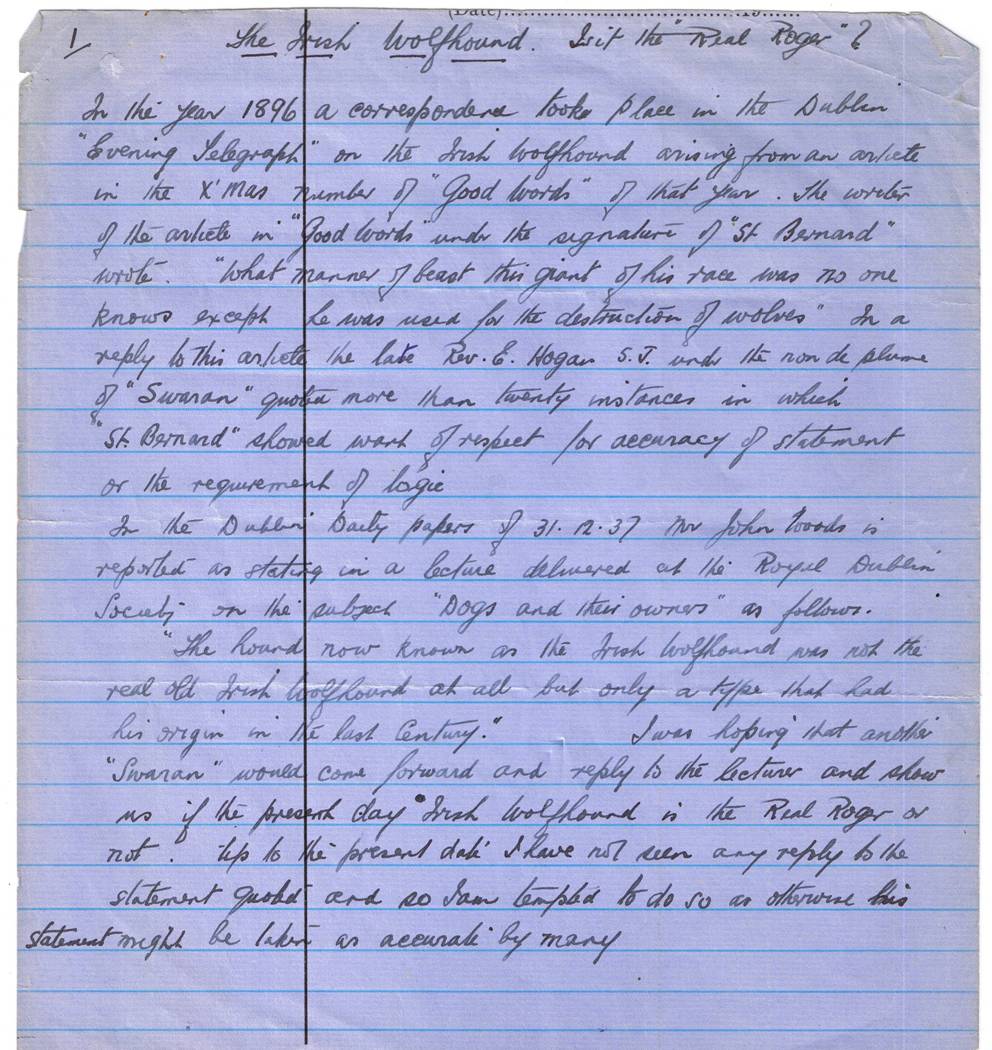 (Date)..............................19......
1 The Irish Wolfhound. Is it the "Real Roger"?
In the year 1896 a correspondence tooke place in the Dublin
"Evening Telegraph" on the Irish Wolfhound arising from an article
in the X'Mas number of "Good Words" of that year. The writer
of the article in "Good Words" under the signature of "St Bernard"
wrote. "What manner of beast this giant of his race was no one
knows except he was used for the destruction of wolves" In a
reply to this article the late Rev. E. Hogan S.J. under the non de plume
of "Swaran" quoted more than twenty instances in which
"St Bernard" showed want of respect for accuracy of statement
or the requirement of logic
In the Dublin Daily papers of 31.12.37 Mr John Woods is
reported as stating in a lecture delivered at the Royal Dublin
Society on the subject "Dogs and their owners" as follows.
"The hound now known as the Irish Wolfhound was not the
real old Irish Wolfhound at all but only a type that had
his origin in the last Century." I was hoping that another
"Swaran" would come forward and reply to the lecturer and show
us if the present day Irish Wolfhound is the Real Roger or
not. Up to the present date I have not seen any reply to the
statement quoted and so I am tempted to do so as otherwise his
statement might be taken as accurate by many